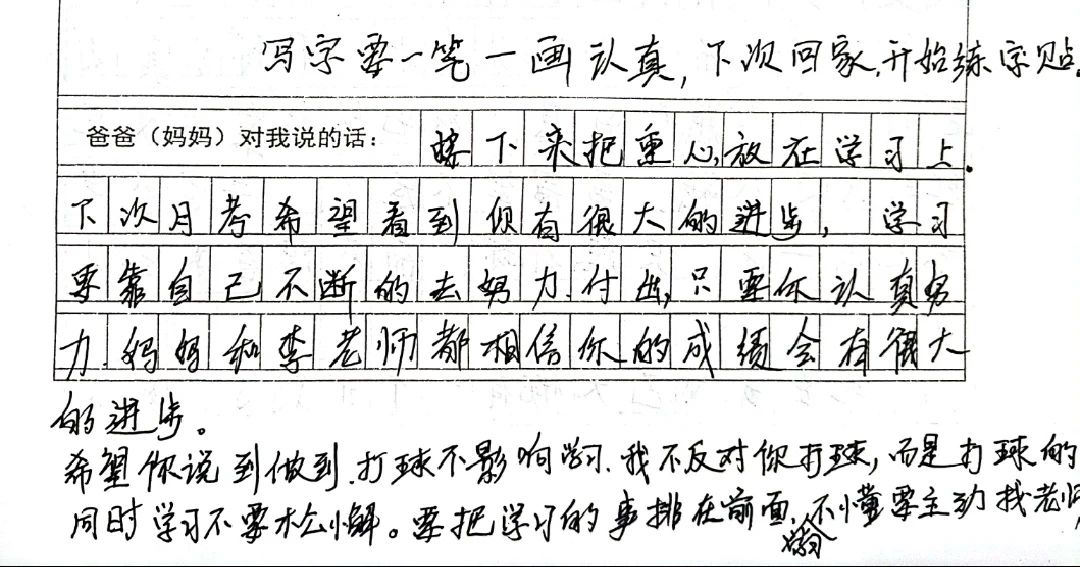 写字要一笔一画认真,下次回家.开始练字贴.
爸爸（妈妈）对我说的话：接下来把重心放在学习上.
下次月考希望看到你有很大的进步, 学习
要靠自己不断的去努力.付出,只要你认真努
力.妈妈和李老师都相信你的成绩会有很大
的进步。
希望你说到做到.打球不影响学习.我不反对你打球,而是打球的
同时学习不要松懈。要把学习的事排在前面.不懂要主动找老师